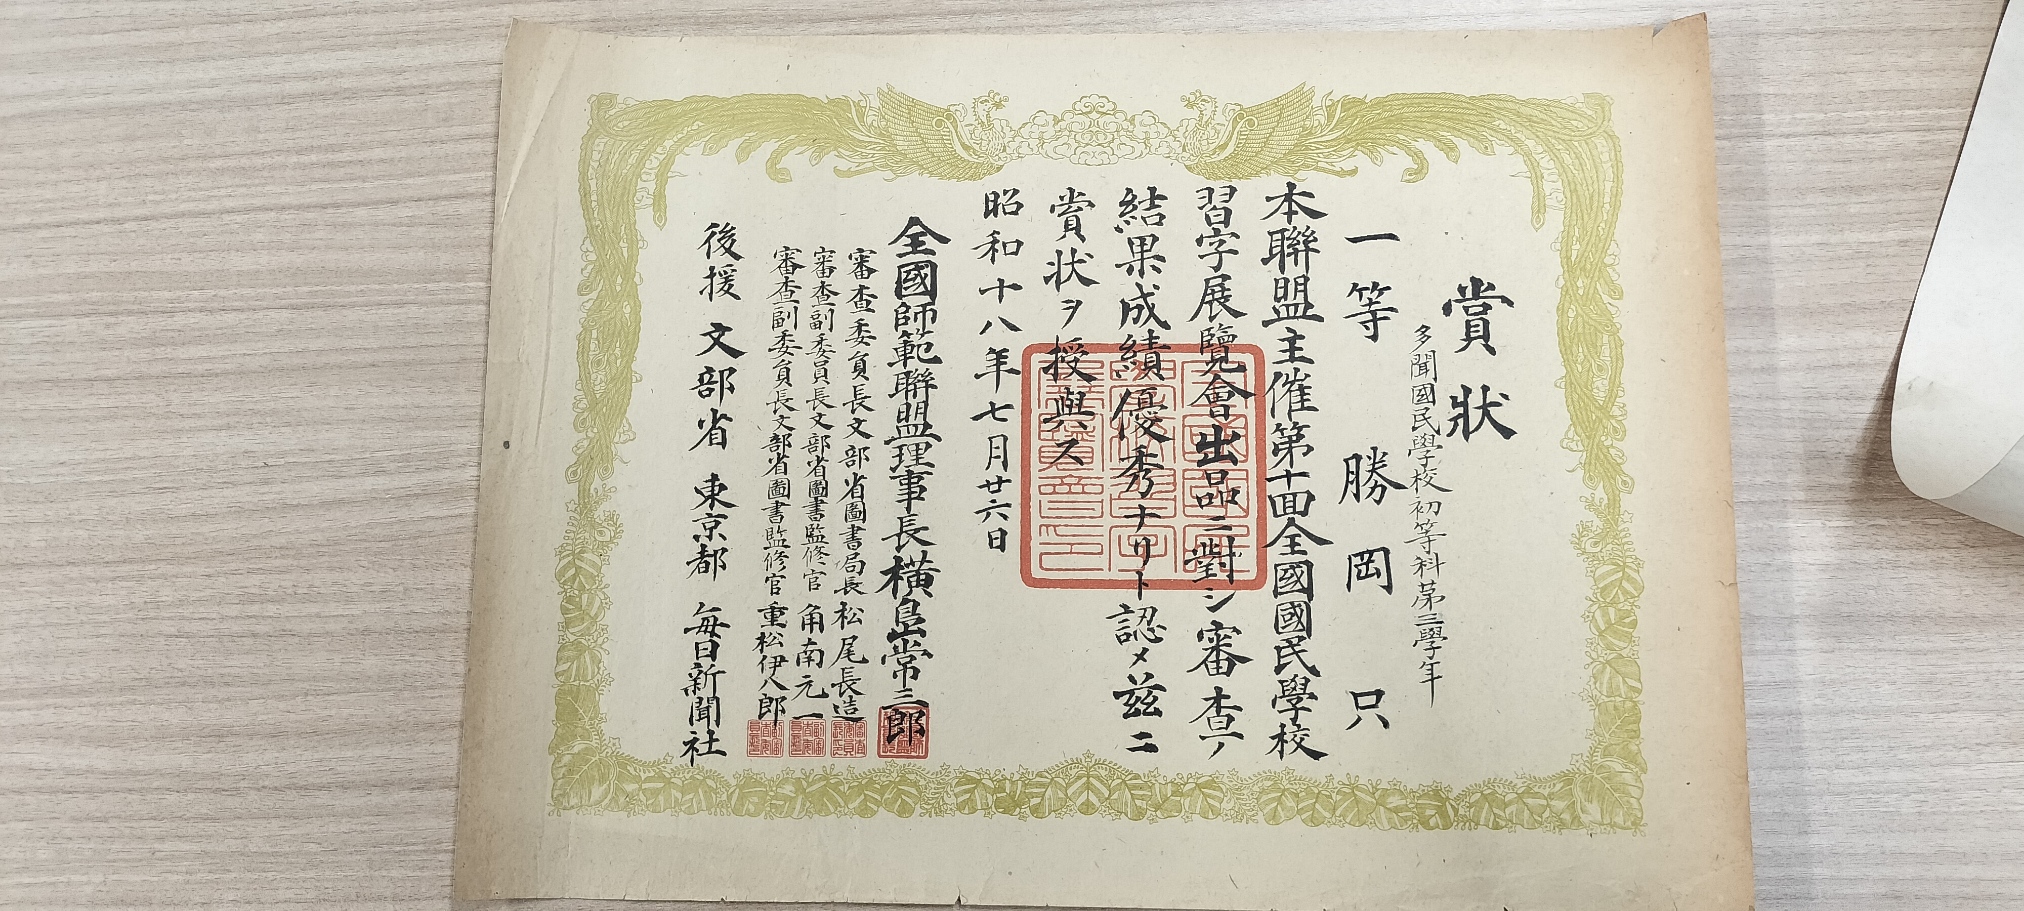 賞狀
多聞國民學校初等科第三學年
一等 勝岡只
本聯盟主催第十回全國國民學校
習字展覽會出品ニ對シ審査ノ
結果成績優秀ナリト認メ茲ニ
賞状ヲ授與ス
昭和十八年七月廿六日
全國師範聯盟理事長横島常三郎
審査委員長文部省圖書局長松尾長造
審査副委員長文部省圖書監修官角南元一
審査副委員長文部省圖書監修官重松伊八郎
後援 文部省 東京都 每日新聞社